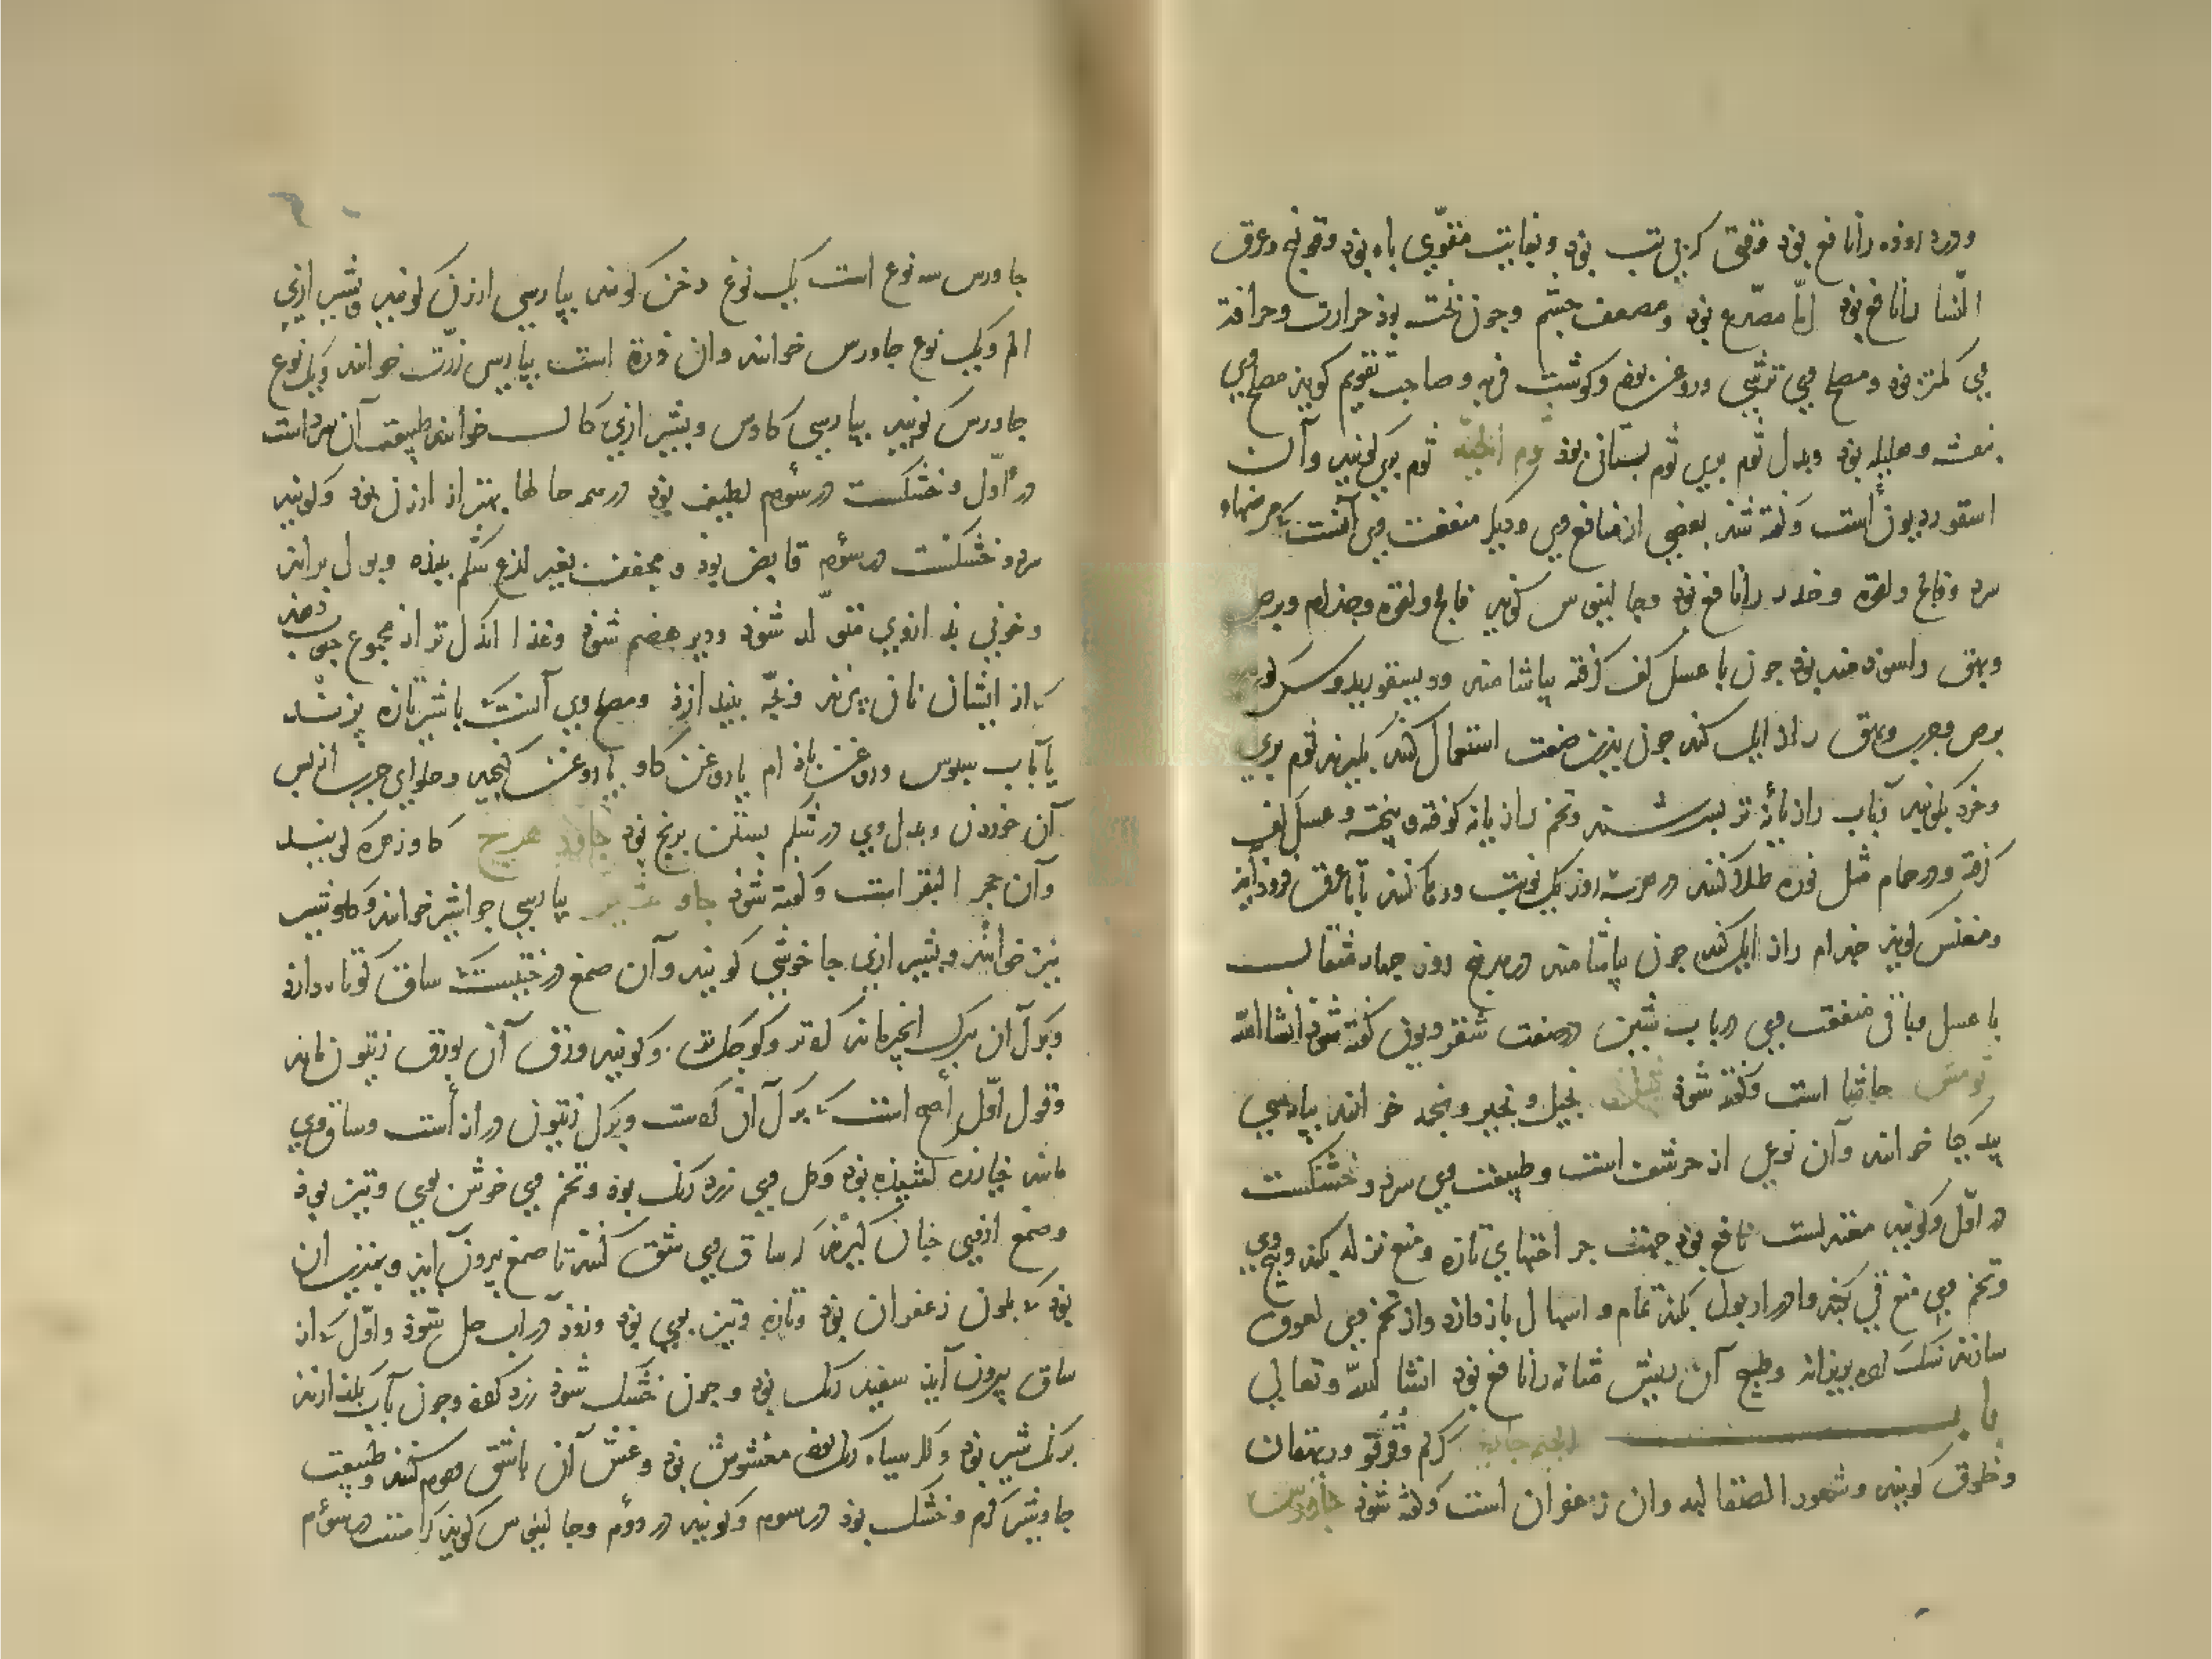 ودرد روده را نافع بود وقتی که بی تب بود و بغایت مقوی باه بود و قولنج و عرق
النسا را نافع بود اما مصدع بود و مضعف چشم و چون پخته بود حرارت و حرافة
وی کمتر بود و مصلح وی ترشی و روغن بود و کوشت فربه و صاحب تقویم کوید مصلح وی
بنفشه و هلیله بود و بدل ثوم بری ثوم بستانی بود ثوم الحیّه ثوم بری کویند و آن
اسقوردیون است و کفته شد بعضی از منافع وی و دیکر منفعت وی آنست که مرضهاء
سرد و فالج و لقوه و خدر را نافع بود و جالینوس کوید فالج و لقوه و جذام و برص
و بهق را سودمند بود چون با عسل کف کرفته بیاشامند و دیسقوریدوس کوید
برص و جرب و بهق را زایل کند چون بدین صفت استعمال کنند بکیرند ثوم بری
و خرد بکوبند بآب رازیانه تر بسرشند و تخم رازیانه کوفته و بیخته و عسل کف
کرفته و در حمام مثل نوره طلا کنند در هر سه روز یک نوبت و رها کنند تا با عرق فرود آید
و مغنس کوید جذام را زایل کند چون بیاشامند در هر پنج روز چهار مثقال
با عسل و باقی منفعت وی در باب شین در صفت شقردیون کفته شود انشا الله
ثومس حاشا است و کفته شود ثیل نجیل و نجیر و نجمه خوانند بپارسی
بید کیا خوانند و آن نوعی از حرشف است و طبیعت وی سرد و خشکست
در اول و کویند معتدلست نافع بود جهت جراحتهای تازه و منع نزله بکند و بیخ وی
و تخم وی منع قی بکند و ادرار بول بکند تمام و اسهال باز دارد و از تخم وی لعوق
سازند سنک را بریزاند و طبیخ آن ریش مثانه را نافع بود انشا الله و تعالی
باب الجیم جادی کرکم و قرقو و ریهقان
و خلوق کویند و شعور الصقالبه و آن زعفران است و کفته شود جاورس
جاورس سه نوع است یک نوع دخن کویند بپارسی ارزن کویند و بشیرازی
الم و یک نوع جاورس خوانند و آن ذرة است بپارسی زرّت خوانند و یک نوع
جاورس کویند بپارسی کاورس و بشیرازی کال خوانند طبیعت آن سرد است
در اول و خشکست در سؤم لطیف بود در همه حالها بهتر از ارزن بود و کویند
سرد و خشکست در سؤم قابض بود و مجفف بغیر لذع شکم ببندد و بول براند
و خونی بد از وی متولد شود و دیر هضم شود و غذا اندک تر از مجموع حبوب دهد
که از ایشان نان پزند و بچه بیندازد و مصلح وی آنست که با شیر تازه پزند
یا بآب سبوس و روغن بادام یا روغن کاو یا روغن کنجد و حلوای چرب از پس
آن خوردن و بدل وی در شکم بستن برنج بود جاوزهرج کاوزهره کویند
و آن حجر البقر است و کفته شود جاوشیر بپارسی جواشیر خوانند و کاوشیر
نیز خوانند و بشیرازی جاخوشی کویند و آن صمغ درختیست که ساق کوتاه دارد
و برک آن ببرک انجیر ماند کردتر و کوچک تر و کویند ورق آن بورق زیتون ماند
و قول اول اصح است که برک آن کردست و برک زیتون درازست و ساق وی
مانند خیارزه کشیده بود و کل وی زرد رنک بود و تخم وی خوش بوی و تیز بود
و صمغ از وی چنان کیرند که ساق وی شق کنند تا صمغ بیرون آید و بهترین آن
بود که بلون زعفران بود و تازه و تیز بوی بود و زود در آب حل شود و اول که از
ساق بیرون آید سفید رنک بود و چون خشک شود زرد کردد و چون بآب بکدازند
برنک شیر بود و کل سیاه رنک بود مغشوش بود و غش آن باشق و موم کنند و طبیعت
جاوشیر کرم و خشک بود در سوم و کویند در دوم و جالینوس کوید کرمست در سؤم